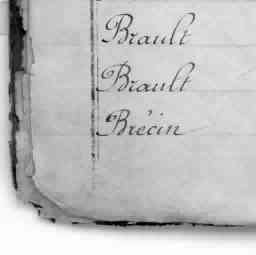 Brault
Brault
Brécin